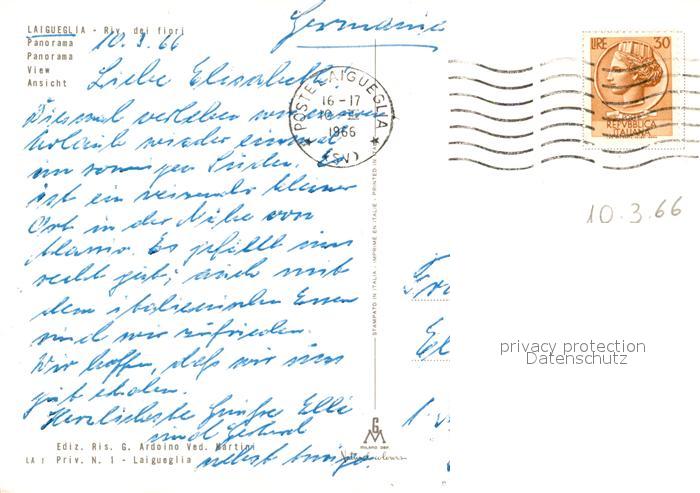 LAIGUEGLIA - Riv. dei fiori
Panorama
Panorama
View
Ansicht
10.3.66
Germania
Liebe Elisabeth!
Diesmal verleben wir unseren
Urlaub wieder einmal
im sonnigen Süden. Es
ist ein reizender kleiner
Ort in der Nähe von
Alassio. Es gefällt uns
recht gut; auch mit
dem italienischen Essen
sind wir zufrieden.
Wir hoffen, daß wir uns
gut erholen.
Herzlichste Grüße Elli
und Gerhard
nebst
Ediz. Ris. G. Ardoino Ved. Martini
LA Priv. N. 1 - Laigueglia
STAMPATO IN ITALIA - IMPRIMÉ EN ITALIE - PRINTED IN ITALY
MILANO
POSTE LAIGUEGLIA
16-17
1966
(SV)
LIRE 30
REPVBBLICA
ITALIANA
10.3.66
privacy protection
Datenschutz